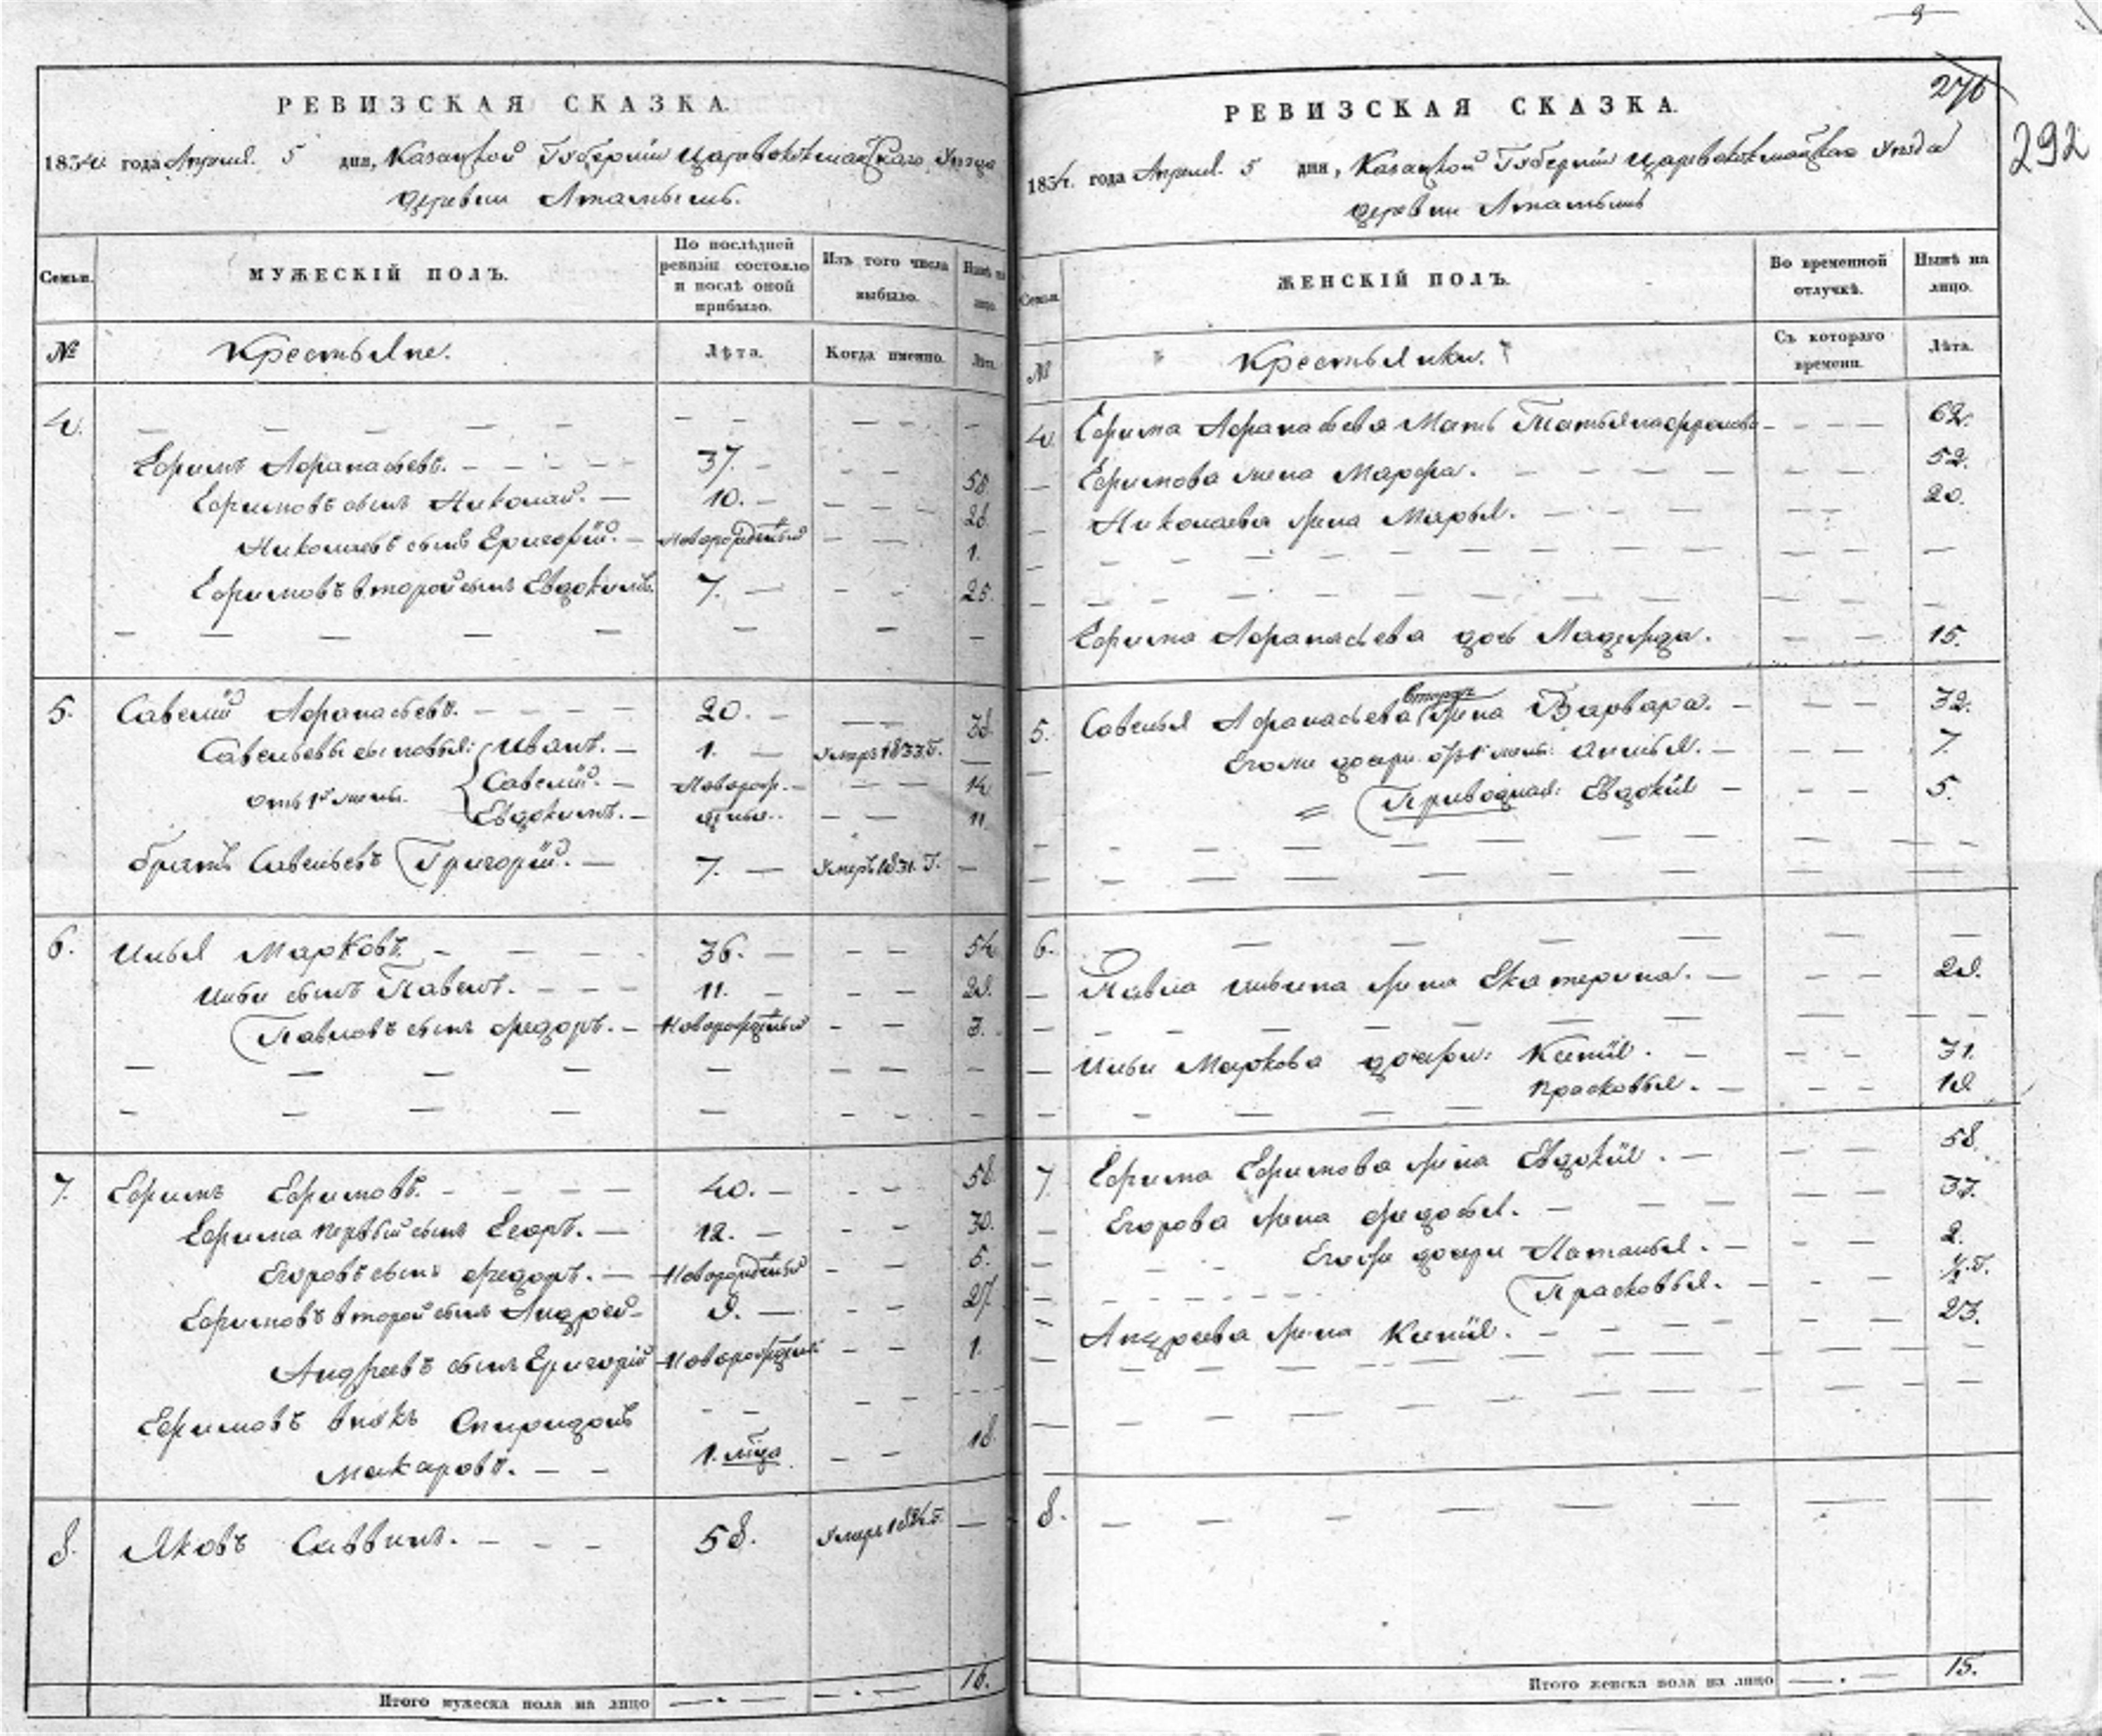 РЕВИЗСКАЯ СКАЗКА.
1834 года Апреля 5 дня, Казанской Губернии Царевококшайского Уезда
деревни
Семьи. МУЖЕСКІЙ ПОЛЪ. По послѣдней ревизіи состояло и послѣ оной прибыло. Изъ того числа выбыло. Нынѣ на лицо.
№ Крестьяне. Лѣта. Когда именно. Лѣта.
4.
Ефимъ Афанасьевъ. 37. 58
Ефимовъ сынъ Николай. 10. 28
Николаевъ сынъ Григорій. Новорожденный 1.
Ефимовъ второй сынъ Евдокимъ. 7. 25.
5. Савелій Афанасьевъ. 20. 38
Савельевы сыновья: Иванъ. 1. Умеръ 1833 г.
отъ 1й жены. Савелій. Новорож. 14
Евдокимъ. 11
братъ Савельевъ Григорій. 7. Умеръ 1831. г.
6. Илья Марковъ 36. 54
Ильи сынъ Павелъ. 11. 29.
Павловъ сынъ Федоръ. Новорожденный 3.
7. Ефимъ Ефимовъ. 40. 58
Ефима первый сынъ Егоръ. 12. 30.
Егоровъ сынъ Федоръ. Новорожденный 5.
Ефимовъ второй сынъ Андрей 9. 27.
Андреевъ сынъ Григорій Новорожденный 1.
Ефимовъ внукъ Спиридонъ
Макаровъ. 1. мца 18.
8. Яковъ Саввинъ. 58. Умеръ
Итого мужеска пола на лицо 16.
9
276
292
РЕВИЗСКАЯ СКАЗКА.
1834. года Апреля 5 дня, Казанской Губернии Царевококшайского Уезда
деревни
Семьи. ЖЕНСКІЙ ПОЛЪ. Во временной отлучкѣ. Нынѣ на лицо.
№ Крестьянки. Съ котораго времени. Лѣта.
4. Ефима Афанасьева Мать Татьяна 62.
Ефимова жена Марфа. 52.
Николаева жена Марья. 20.
Ефима Афанасьева дочь Надежда. 15.
5. Савелья Афанасьева вторая жена Варвара. 32.
Его же дочери 7.
Приводная: Евдокія 5.
6.
Павла Ильина жена Екатерина. 29.
Ильи Маркова дочери: Ксенія. 31.
Прасковья. 19
7. Ефима Ефимова жена Евдокія. 58.
Егорова жена Федосья. 33.
Его же дочери Наталья. 2.
Прасковья. ½ г.
Андреева жена Ксенія. 23.
8.
Итого женска пола на лицо 15.